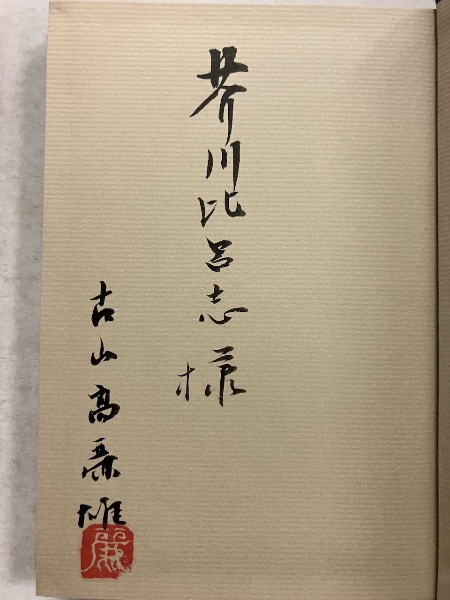 芥川比呂志様
古山高麗雄